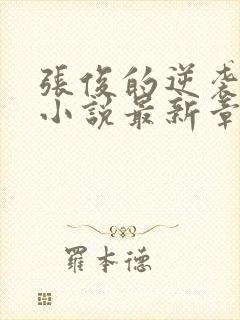 張俊的逆袭
小說最新章
羅本德